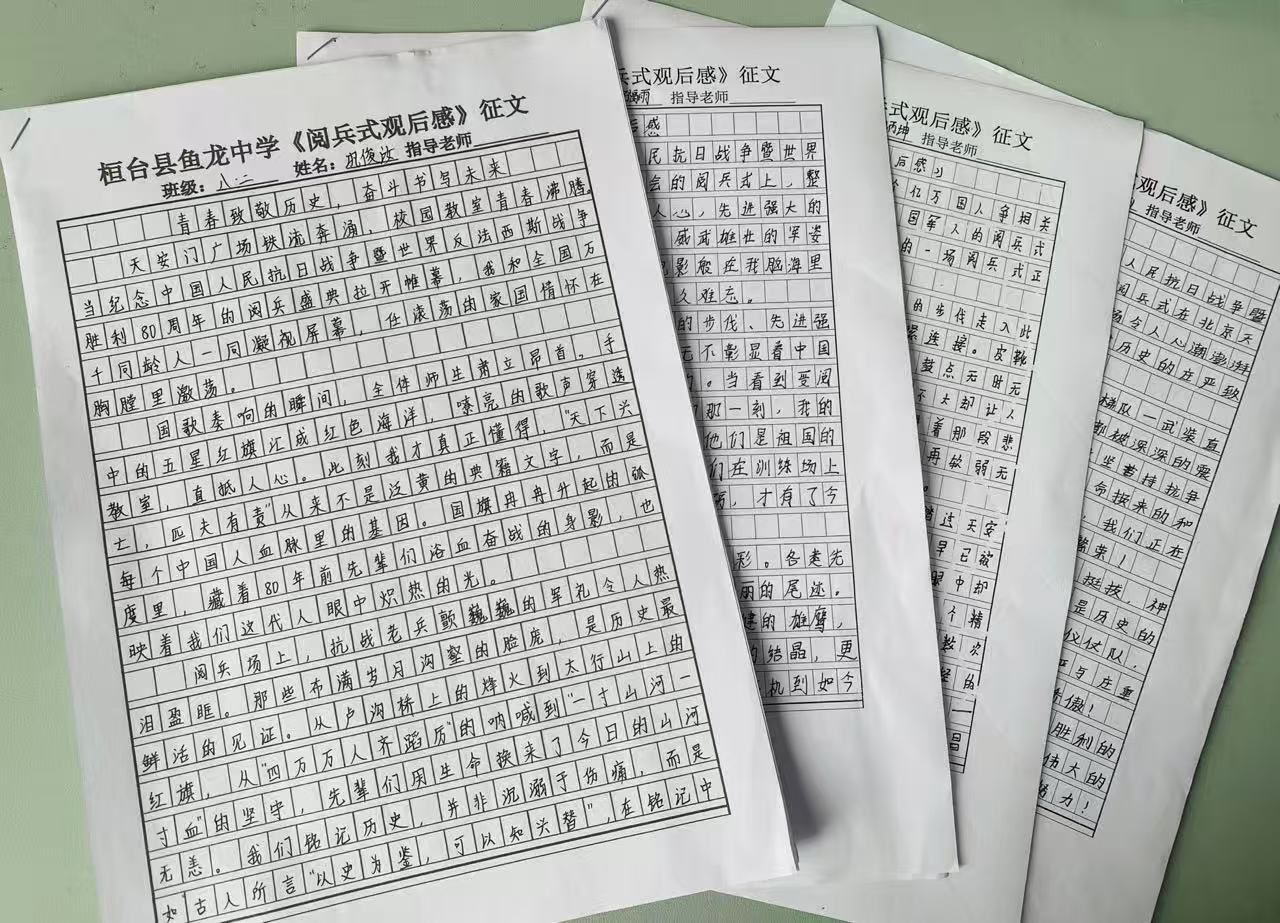 桓台县鱼龙中学《阅兵式观后感》征文
班级：八.二 姓名：巩俊汝 指导老师
青春致敬历史，奋斗书写未来
天安门广场铁流奔涌，校园教室青春沸腾。
当纪念中国人民抗日战争暨世界反法西斯战争
胜利80周年的阅兵盛典拉开帷幕，我和全国万
千同龄人一同凝视屏幕，任滚荡的家国情怀在
胸膛里激荡。
国歌奏响的瞬间，全体师生肃立昂首，手
中的五星红旗汇成红色海洋，嘹亮的歌声穿透
教室，直抵人心。此刻我才真正懂得，“天下兴
亡，匹夫有责”从来不是泛黄的典籍文字，而是
每个中国人血脉里的基因。国旗冉冉升起的弧
度里，藏着80年前先辈们浴血奋战的身影，也
映着我们这代人眼中炽热的光。
阅兵场上，抗战老兵颤巍巍的军礼令人热
泪盈眶。那些布满岁月沟壑的脸庞，是历史最
鲜活的见证。从卢沟桥上的烽火到太行山上的
红旗，从“四万万人齐蹈厉”的呐喊到“一寸山河一
寸血”的坚守，先辈们用生命换来了今日的山河
无恙。我们铭记历史，并非沉溺于伤痛，而是
如“古人所言“以史为鉴，可以知兴替”，在铭记中
兵式观后感》征文
雨 指导老师
后感
民抗日战争暨世界
会的阅兵式上，整
人心，先进强大的
威武雄壮的军姿
影般在我脑海里
久难忘。
的步伐、先进强
无不彰显看中国
。当看到受阅
那一刻，我的
他们是祖国的
们在训练场上
，才有了今
彩。各类先
丽的尾迹。
的雄鹰，
的结晶，更
机到如今
式观后感》征文
坤 指导老师
后感》
亿万国人争相关
国军人的阅兵式
的一场阅兵式正
的步伐走入此
紧连接。皮靴
鼓点无时无
个大却让人
着那段悲
再软弱无
踏过天安
早已被
眼中却
个精
数次
的
一
昌
观后感》征文
指导老师
人民抗日战争暨
阅兵式在北京天
场令人心潮澎湃
历史的庄严致
梯队一武装直
被深深的震
坚着持抗争
命换来的和
我们正在
紫荆！
挺拔，神
是历史的
仪仗队，
严与庄重
傲！
胜利的
伟大的
努力！